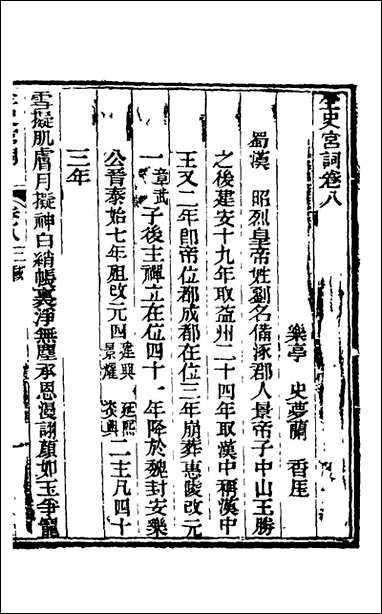 全史宮詞卷八
樂亭 史夢蘭 香厓
蜀漢 昭烈皇帝姓劉名備涿郡人景帝子中山王勝
之後建安十九年取益州二十四年取漢中稱漢中
王又二年即帝位都成都在位三年崩葬惠陵改元
一章武子後主禪立在位四十一年降於魏封安樂
公晉泰始七年殂改元四建興 延熙 景耀 炎興二主凡四十
三年
雪擬肌膚月擬神白綃帳裏淨無塵承恩漫詡顏如玉爭寵
卷八